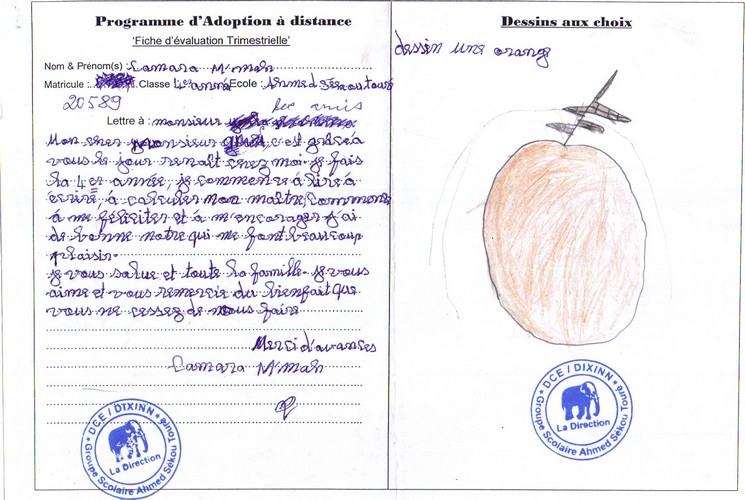 Programme d'Adoption à distance
'Fiche d'évaluation Trimestrielle'
Nom & Prénom(s) : Camara M'mah
Matricule : Classe 4e année Ecole : Ahmed Sékou touré
20589 les amis
Lettre à : monsieur
Mon cher monsieur c'est grâce à
vous le jour renaît chez moi. je fais
la 4er année, je commence à lire à
écrire, à calculer mon maître commence
à me féliciter et à m'encorager j'ai
de bonne notre qui me font beaucoup
plaisir.
je vous salue et toute la famille. je vous
aime et vous remercie du bienfait que
vous ne cessez de nous faire
Merci d'avances
Camara M'mah
DCE / DIXINN
La Direction
Groupe Scolaire Ahmed Sékou Touré
Dessins aux choix
dessin une orang
DCE / DIXINN
La Direction
Groupe Scolaire Ahmed Sékou Touré